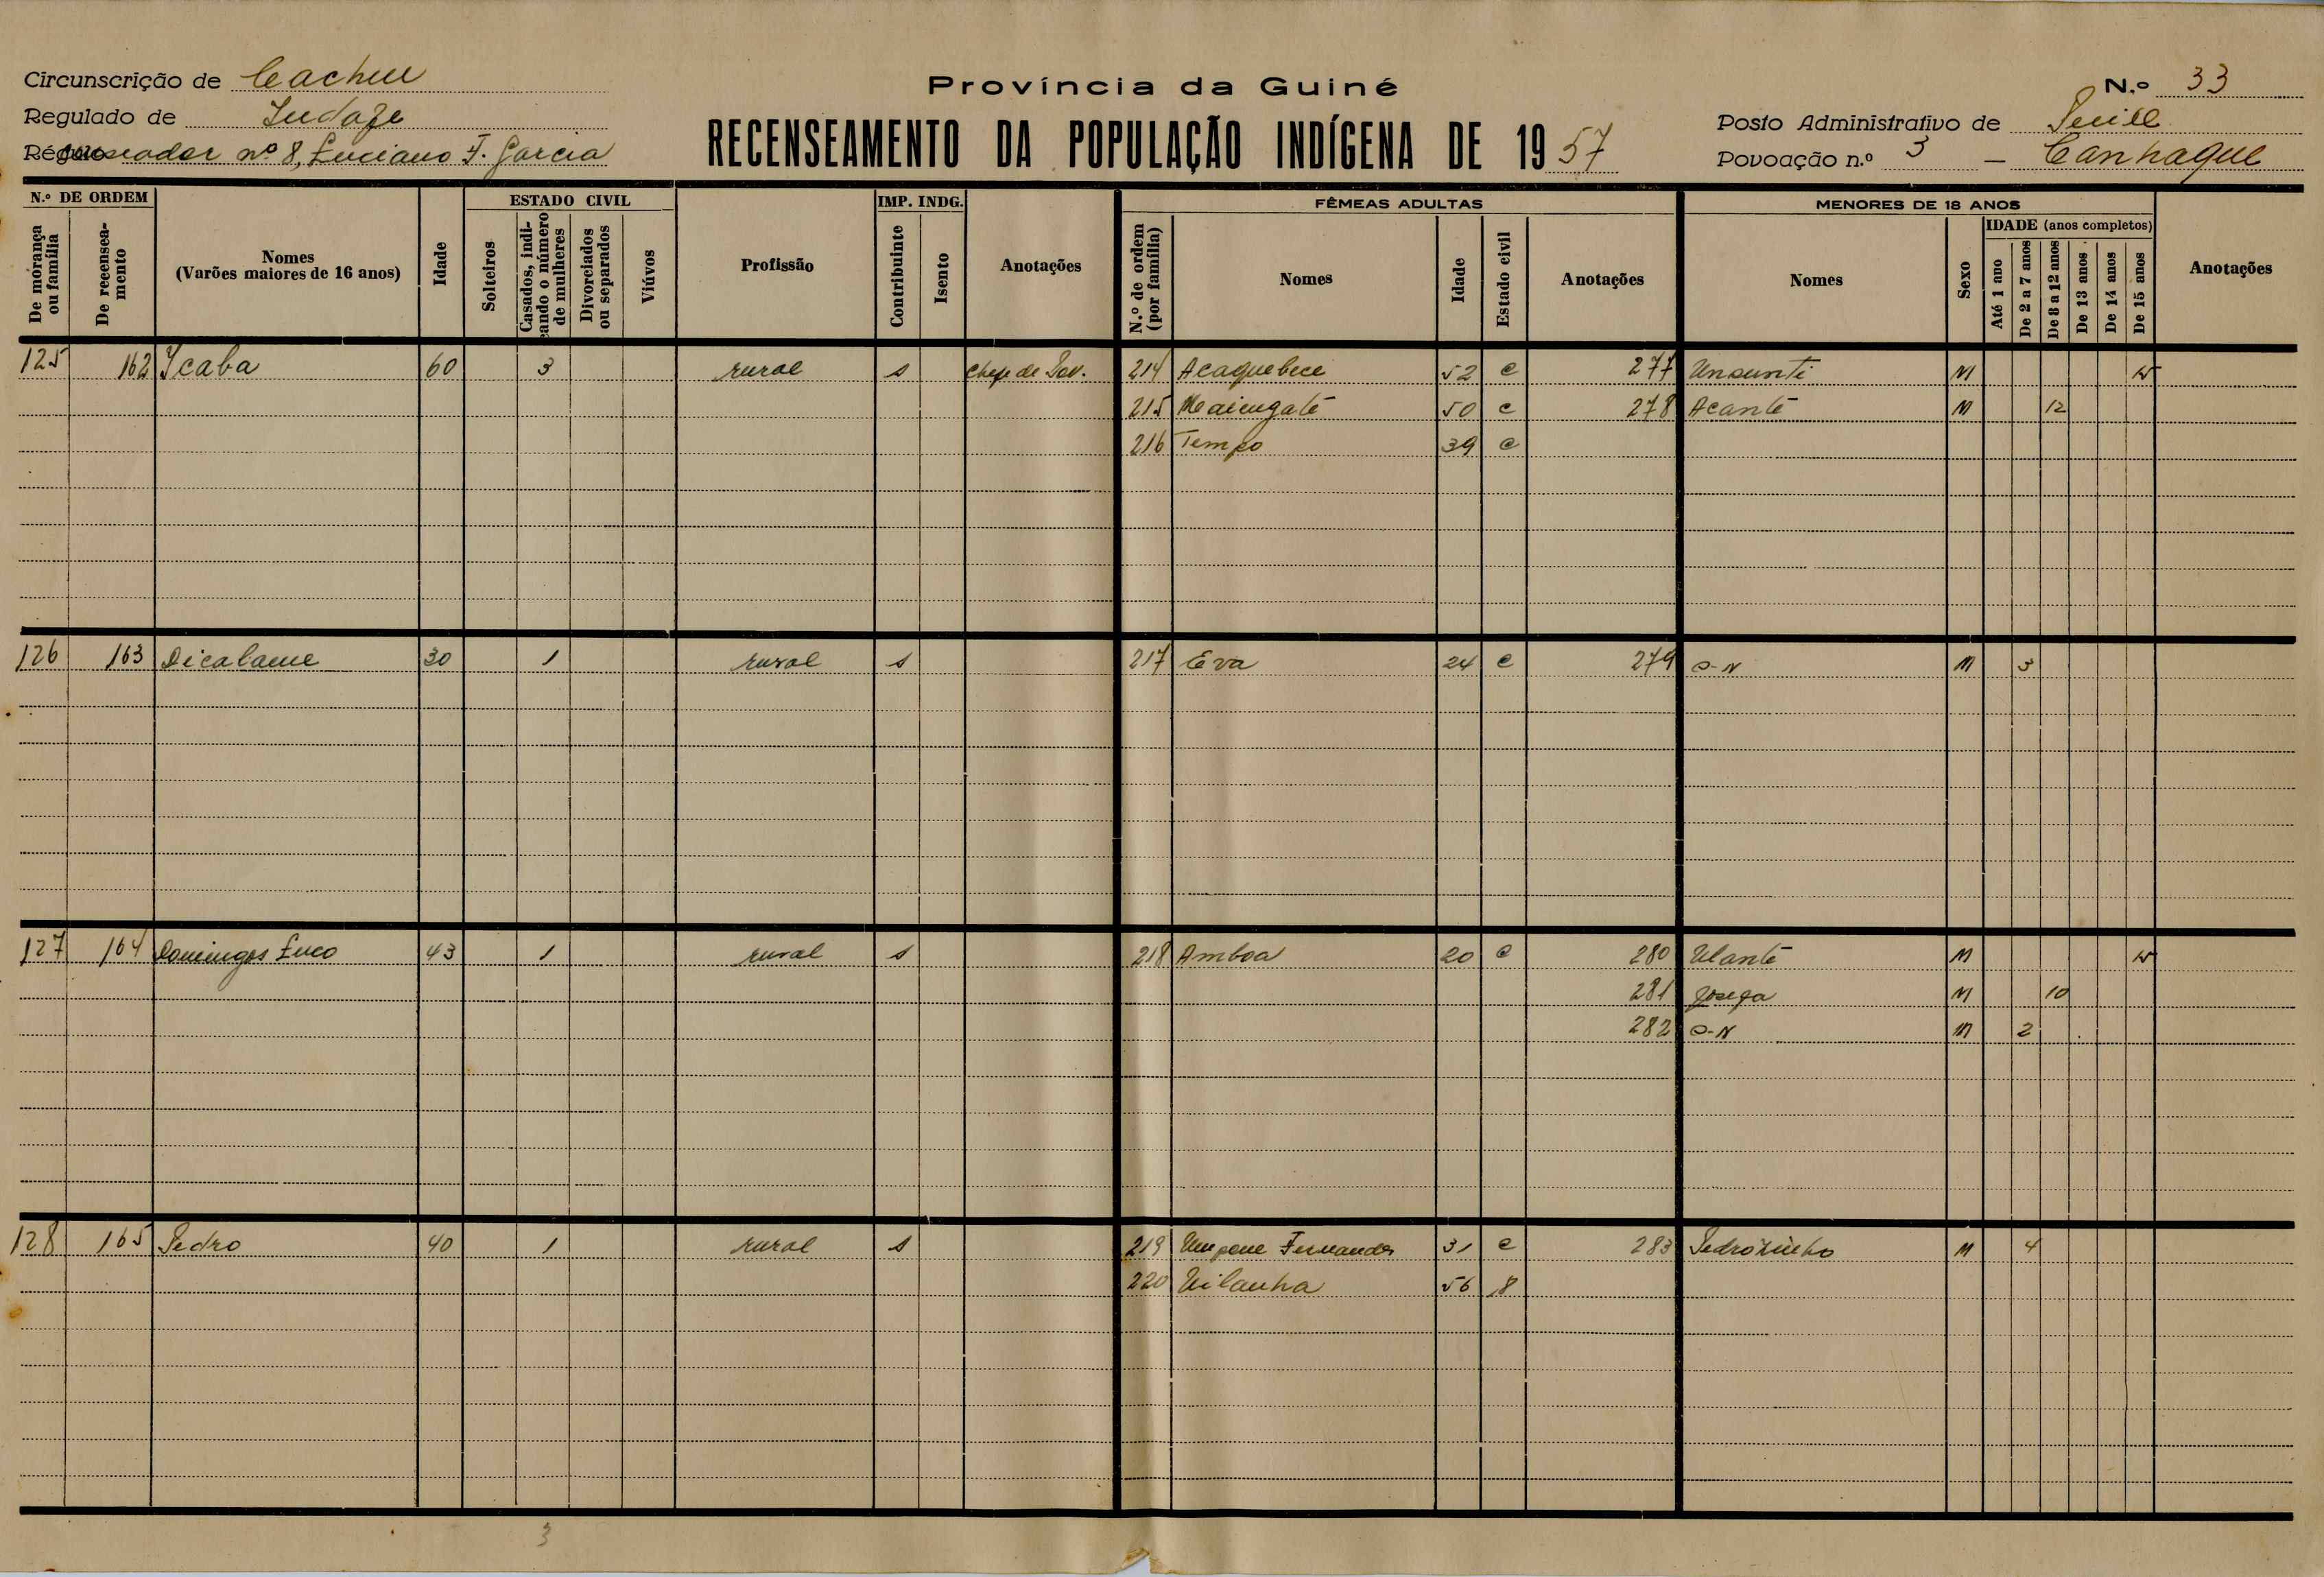 Circunscrição de Cacheu
Província da Guiné
N.º 33
Regulado de
Posto Administrativo de
Recenseador nº 8, Luciano F. Garcia
RECENSEAMENTO DA POPULAÇÃO INDÍGENA DE 1957
Povoação n.º 3 - Canhaque
N.º DE ORDEM
De morança ou família
De recenseamento
Nomes
(Varões maiores de 16 anos)
Idade
ESTADO CIVIL
Solteiros
Casados, indicando o número de mulheres
Divorciados ou separados
Viúvos
Profissão
IMP. INDG.
Contribuinte
Isento
Anotações
FÊMEAS ADULTAS
N.º de ordem (por família)
Nomes
Idade
Estado civil
Anotações
MENORES DE 18 ANOS
Nomes
Sexo
IDADE (anos completos)
Até 1 ano
De 2 a 7 anos
De 8 a 12 anos
De 13 anos
De 14 anos
De 15 anos
Anotações
125 162 Icaba 60 3 rural s Chefe de Pov. 214 Acaquebece 52 c 277 Unsunti M 15
215 50 c 278 Acantê M 12
216 Tempo 39 c
126 163 Dicalame 30 1 rural s 217 Eva 24 c 279 S-N M 3
127 164 Domingos Luco 43 1 rural s 218 Amboa 20 c 280 Ulantê M 15
281 Josefa M 10
282 S-N M 2
128 165 Pedro 40 1 rural s 219 Umpene Fernandes 31 c 283 Pedrozinho M 4
220 Uilanha 56
3